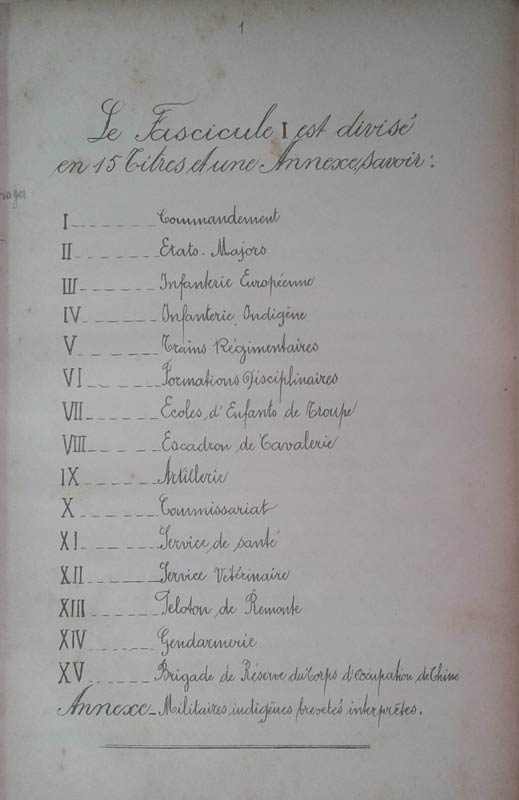 1
Le Fascicule I est divisé
en 15 Titres et une Annexe, savoir :
rages
I Commandement
II Etats-Majors
III Infanterie Européenne
IV Infanterie Indigène
V Trains Régimentaires
VI Formations Disciplinaires
VII Ecoles d'Enfants de Troupe
VIII Escadron de Cavalerie
IX Artillerie
X Commissariat
XI Service de santé
XII Service Vétérinaire
XIII Peloton de Remonte
XIV Gendarmerie
XV Brigade de Réserve du Corps d'Occupation de Chine
Annexe - Militaires indigènes brevetés interprètes.